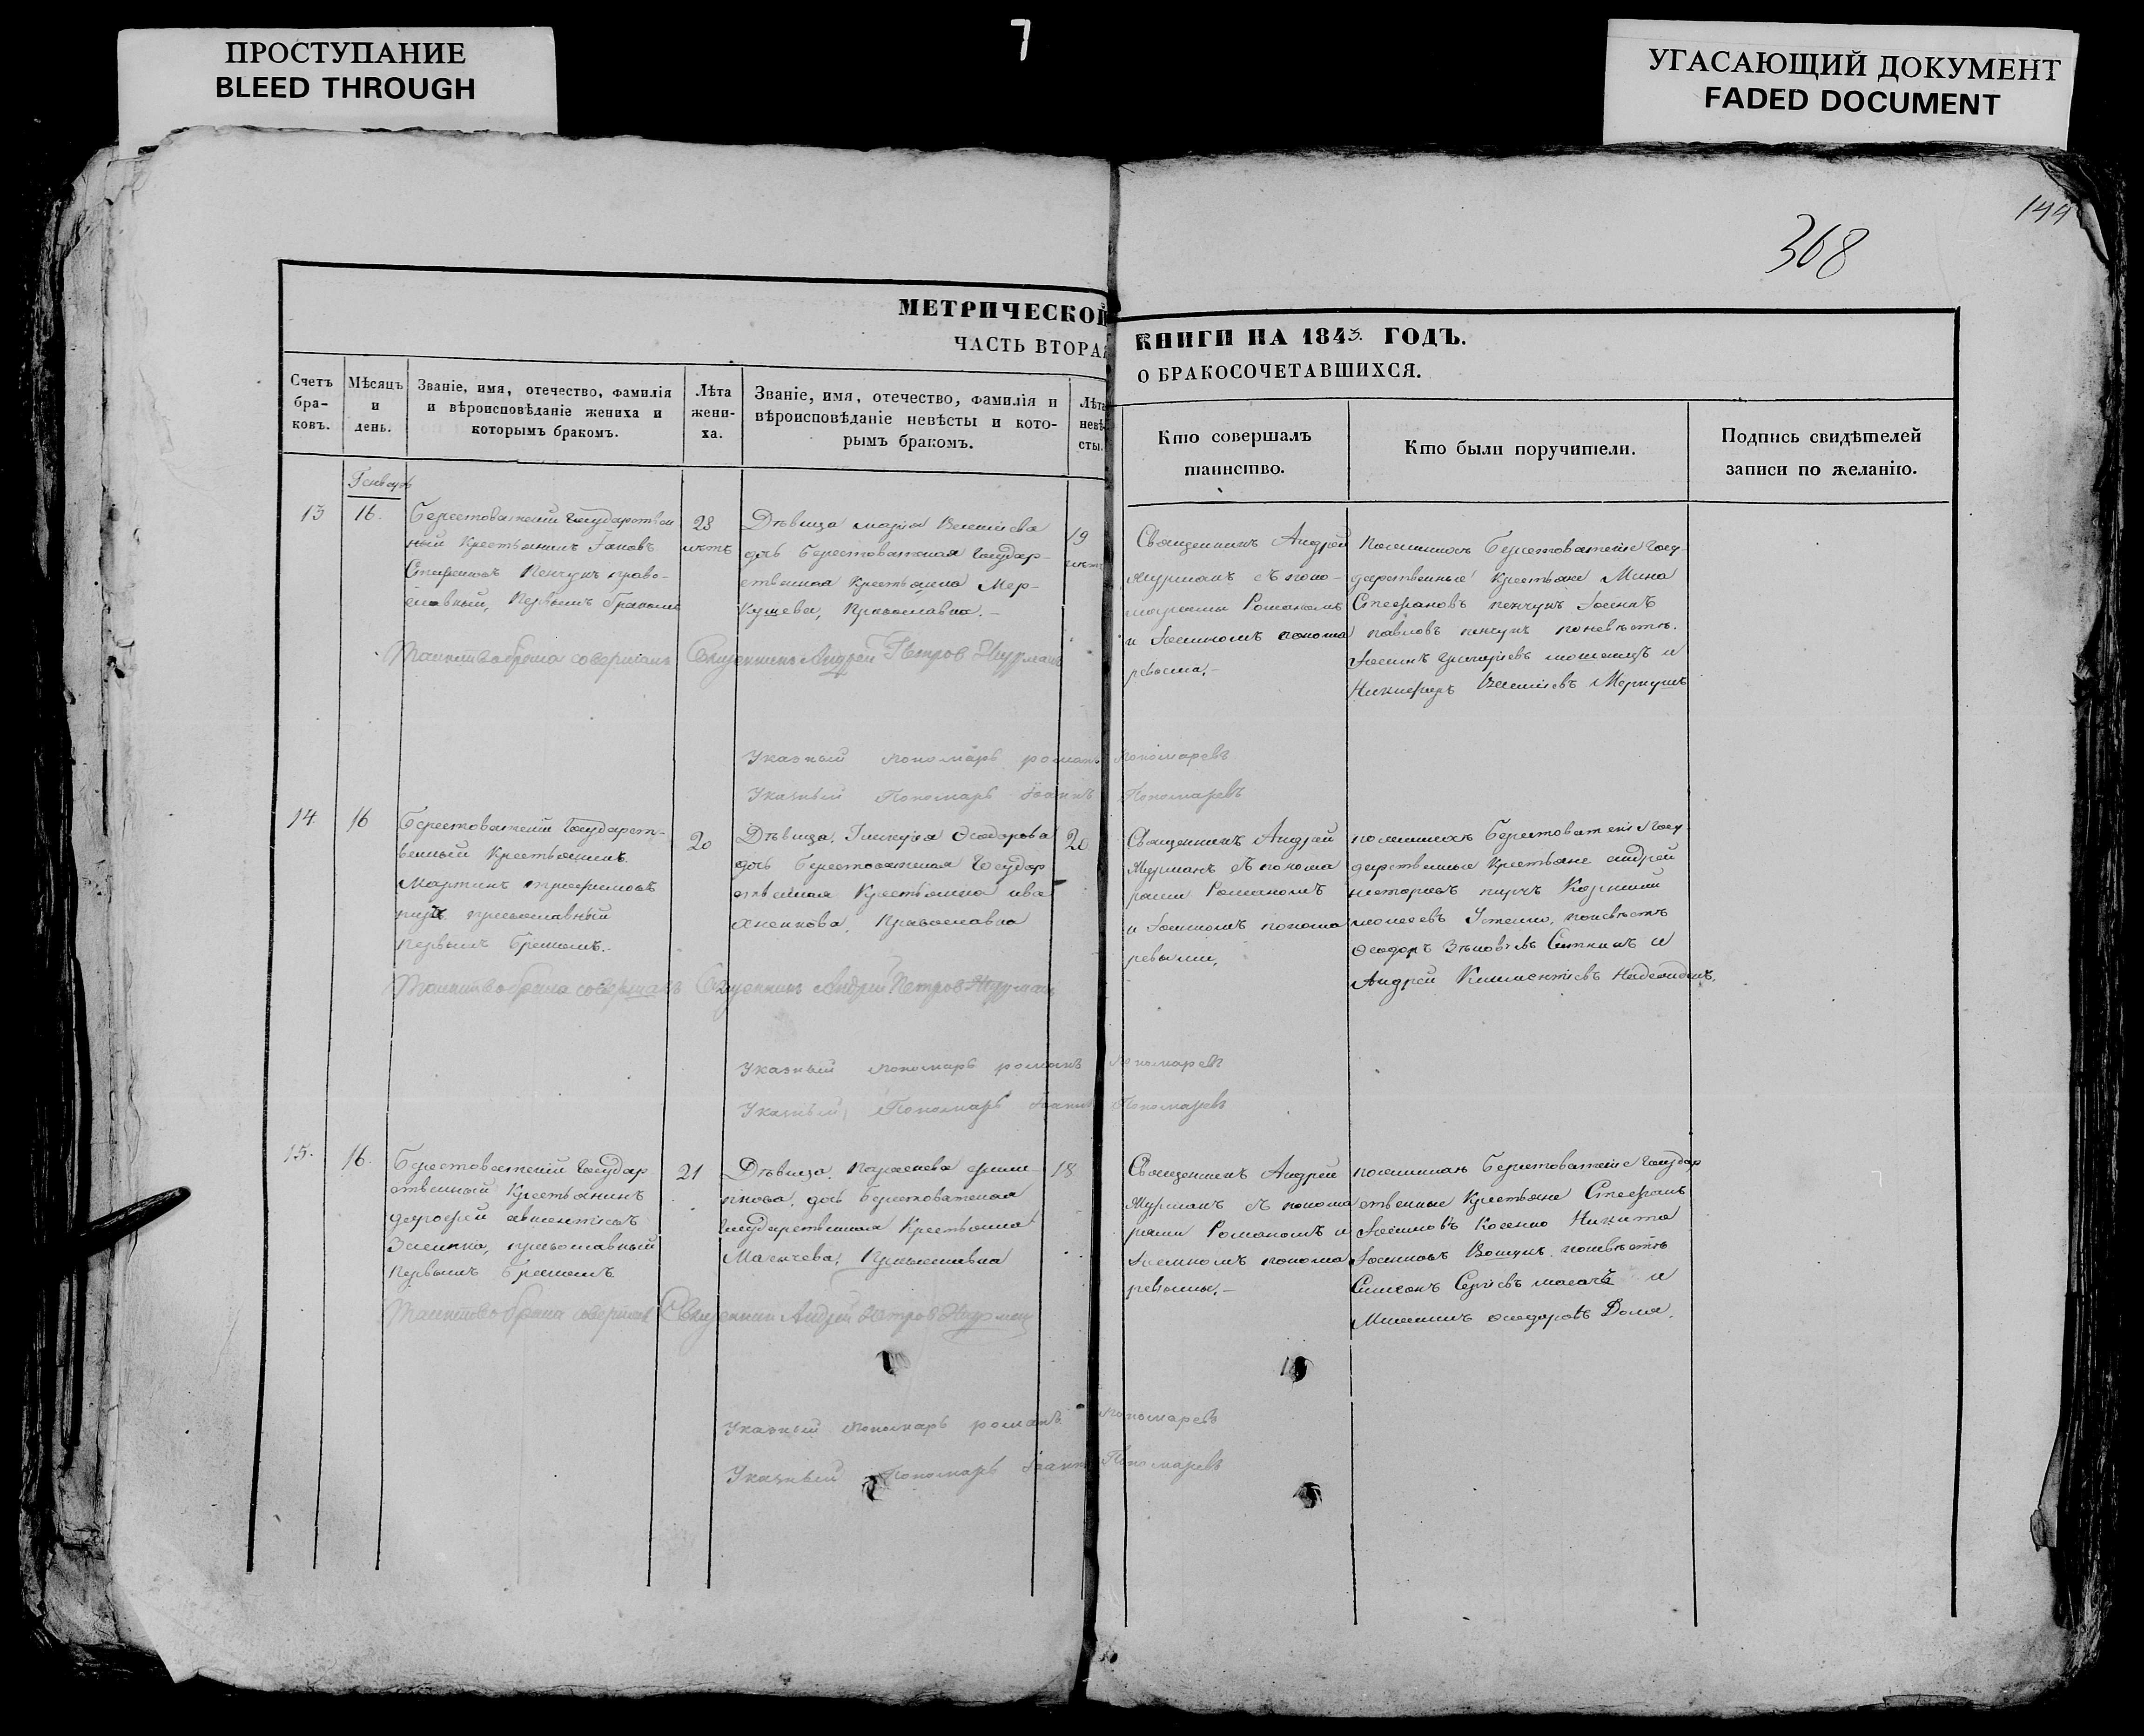 ПРОСТУПАНИЕ
BLEED THROUGH
7
УГАСАЮЩИЙ ДОКУМЕНТ
FADED DOCUMENT
144
368
МЕТРИЧЕСКОЙ КНИГИ НА 1843. ГОДЪ.
ЧАСТЬ ВТОРАЯ О БРАКОСОЧЕТАВШИХСЯ.
Счетъ бра-ковъ.
Мѣсяцъ и день.
Званіе, имя, отечество, фамилія
и вѣроисповѣданіе жениха и
которымъ бракомъ.
Лѣта жени-ха.
Званіе, имя, отечество, фамилія и
вѣроисповѣданіе невѣсты и кото-
рымъ бракомъ.
Лѣта невѣ-сты.
Кто совершалъ
таинство.
Кто были поручители.
Подпись свидѣтелей
записи по желанію.
Генварь
13
16.
Берестоватскій Государствен
ный Крестьянинъ Іаковъ
Стефановъ Пенчукъ право-
славный, Первымъ бракомъ
28
лѣтъ
Дѣвица Марія
дочь Берестоватская Государ-
ственная Крестьянка Мер-
кушева, Православна.-
19
лѣтъ
Священникъ Андрей
Мурманъ съ поно-
марями Романомъ
и Іоанномъ понома
ревыми.-
Берестоватскіе Госу-
дарственные Крестьяне Мина
Стефановъ Пенчукъ Іоаннъ
Павловъ Пенчукъ по невѣстѣ.
Іоаннъ Григорьевъ и
Никифоръ
Таинство брака совершалъ Священникъ Андрей Петров Мурман
Указный Пономарь Романъ Пономаревъ
Указный Пономарь Іоаннъ Пономаревъ
14
16
Берестоватскій Государст-
венный Крестьянинъ
Мартинъ Трофимовъ
православный
Первымъ бракомъ.
20
Дѣвица, Гликерія Ѳеодорова
дочь Берестоватская Государ
ственная Крестьянка Ива
хненкова, Православна
20
Священникъ Андрей
Мурманъ съ понома
рями Романомъ
и Іоанномъ понома
ревыми,
Берестоватскіе Госу
дарственные Крестьяне Андрей
Корнилій
по невѣстѣ
Ѳеодоръ Ситникъ и
Андрей Климентіевъ
Таинство брака совершалъ Священникъ Андрей Петров Мурман
Указный Пономарь Романъ Пономаревъ
Указный Пономарь Іоаннъ Пономаревъ
15.
16.
Берестоватскій Государ
ственный Крестьянинъ
Дорофей
православный
Первымъ бракомъ
21
Дѣвица, Параскева
дочь Берестоватская
Государственная Крестьянка
Православна
18
Священникъ Андрей
Мурманъ съ понома
рями Романомъ и
Іоанномъ понома
ревыми.-
Берестоватскіе Государ
ственные Крестьяне Стефанъ
Іоанновъ Косенко Никита
Іоанновъ по невѣстѣ
Симеонъ Сергіевъ и
Ѳеодоровъ Доля.
Таинство брака совершалъ Священникъ Андрей Петров Мурман
Указный Пономарь Романъ Пономаревъ
Указный Пономарь Іоаннъ Пономаревъ